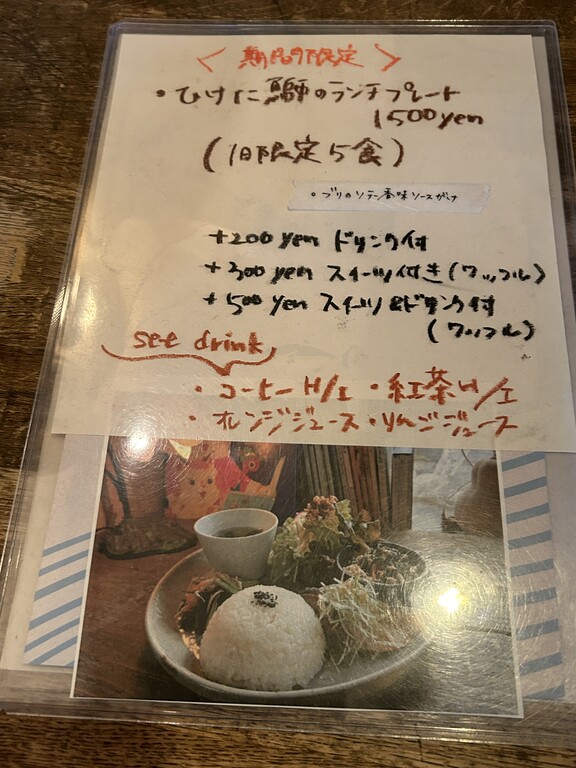 < 期間限定 >
・ひけた鰤のランチプレート
1500yen
(1日限定5食)
・ブリのソテー香味ソースがけ
+200yen ドリンク付
+300yen スイーツ付き(ワッフル)
+500yen スイーツ&ドリンク付
(ワッフル)
set drink
・コーヒーH/I ・紅茶H/I
・オレンジジュース・りんごジュース